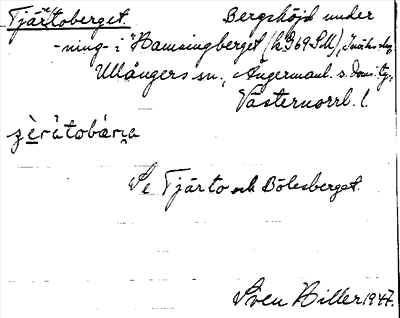 Tjärtoberget. Bergshöjd under
-ning- i "Hamsingberget (RG69SM),
Ullångers sn., Ångermanl. s. doms.
Västernorrl. l.
zèrátobárɳa
Se Tjärto och Bölesberget.
Sven Hiller 1947.